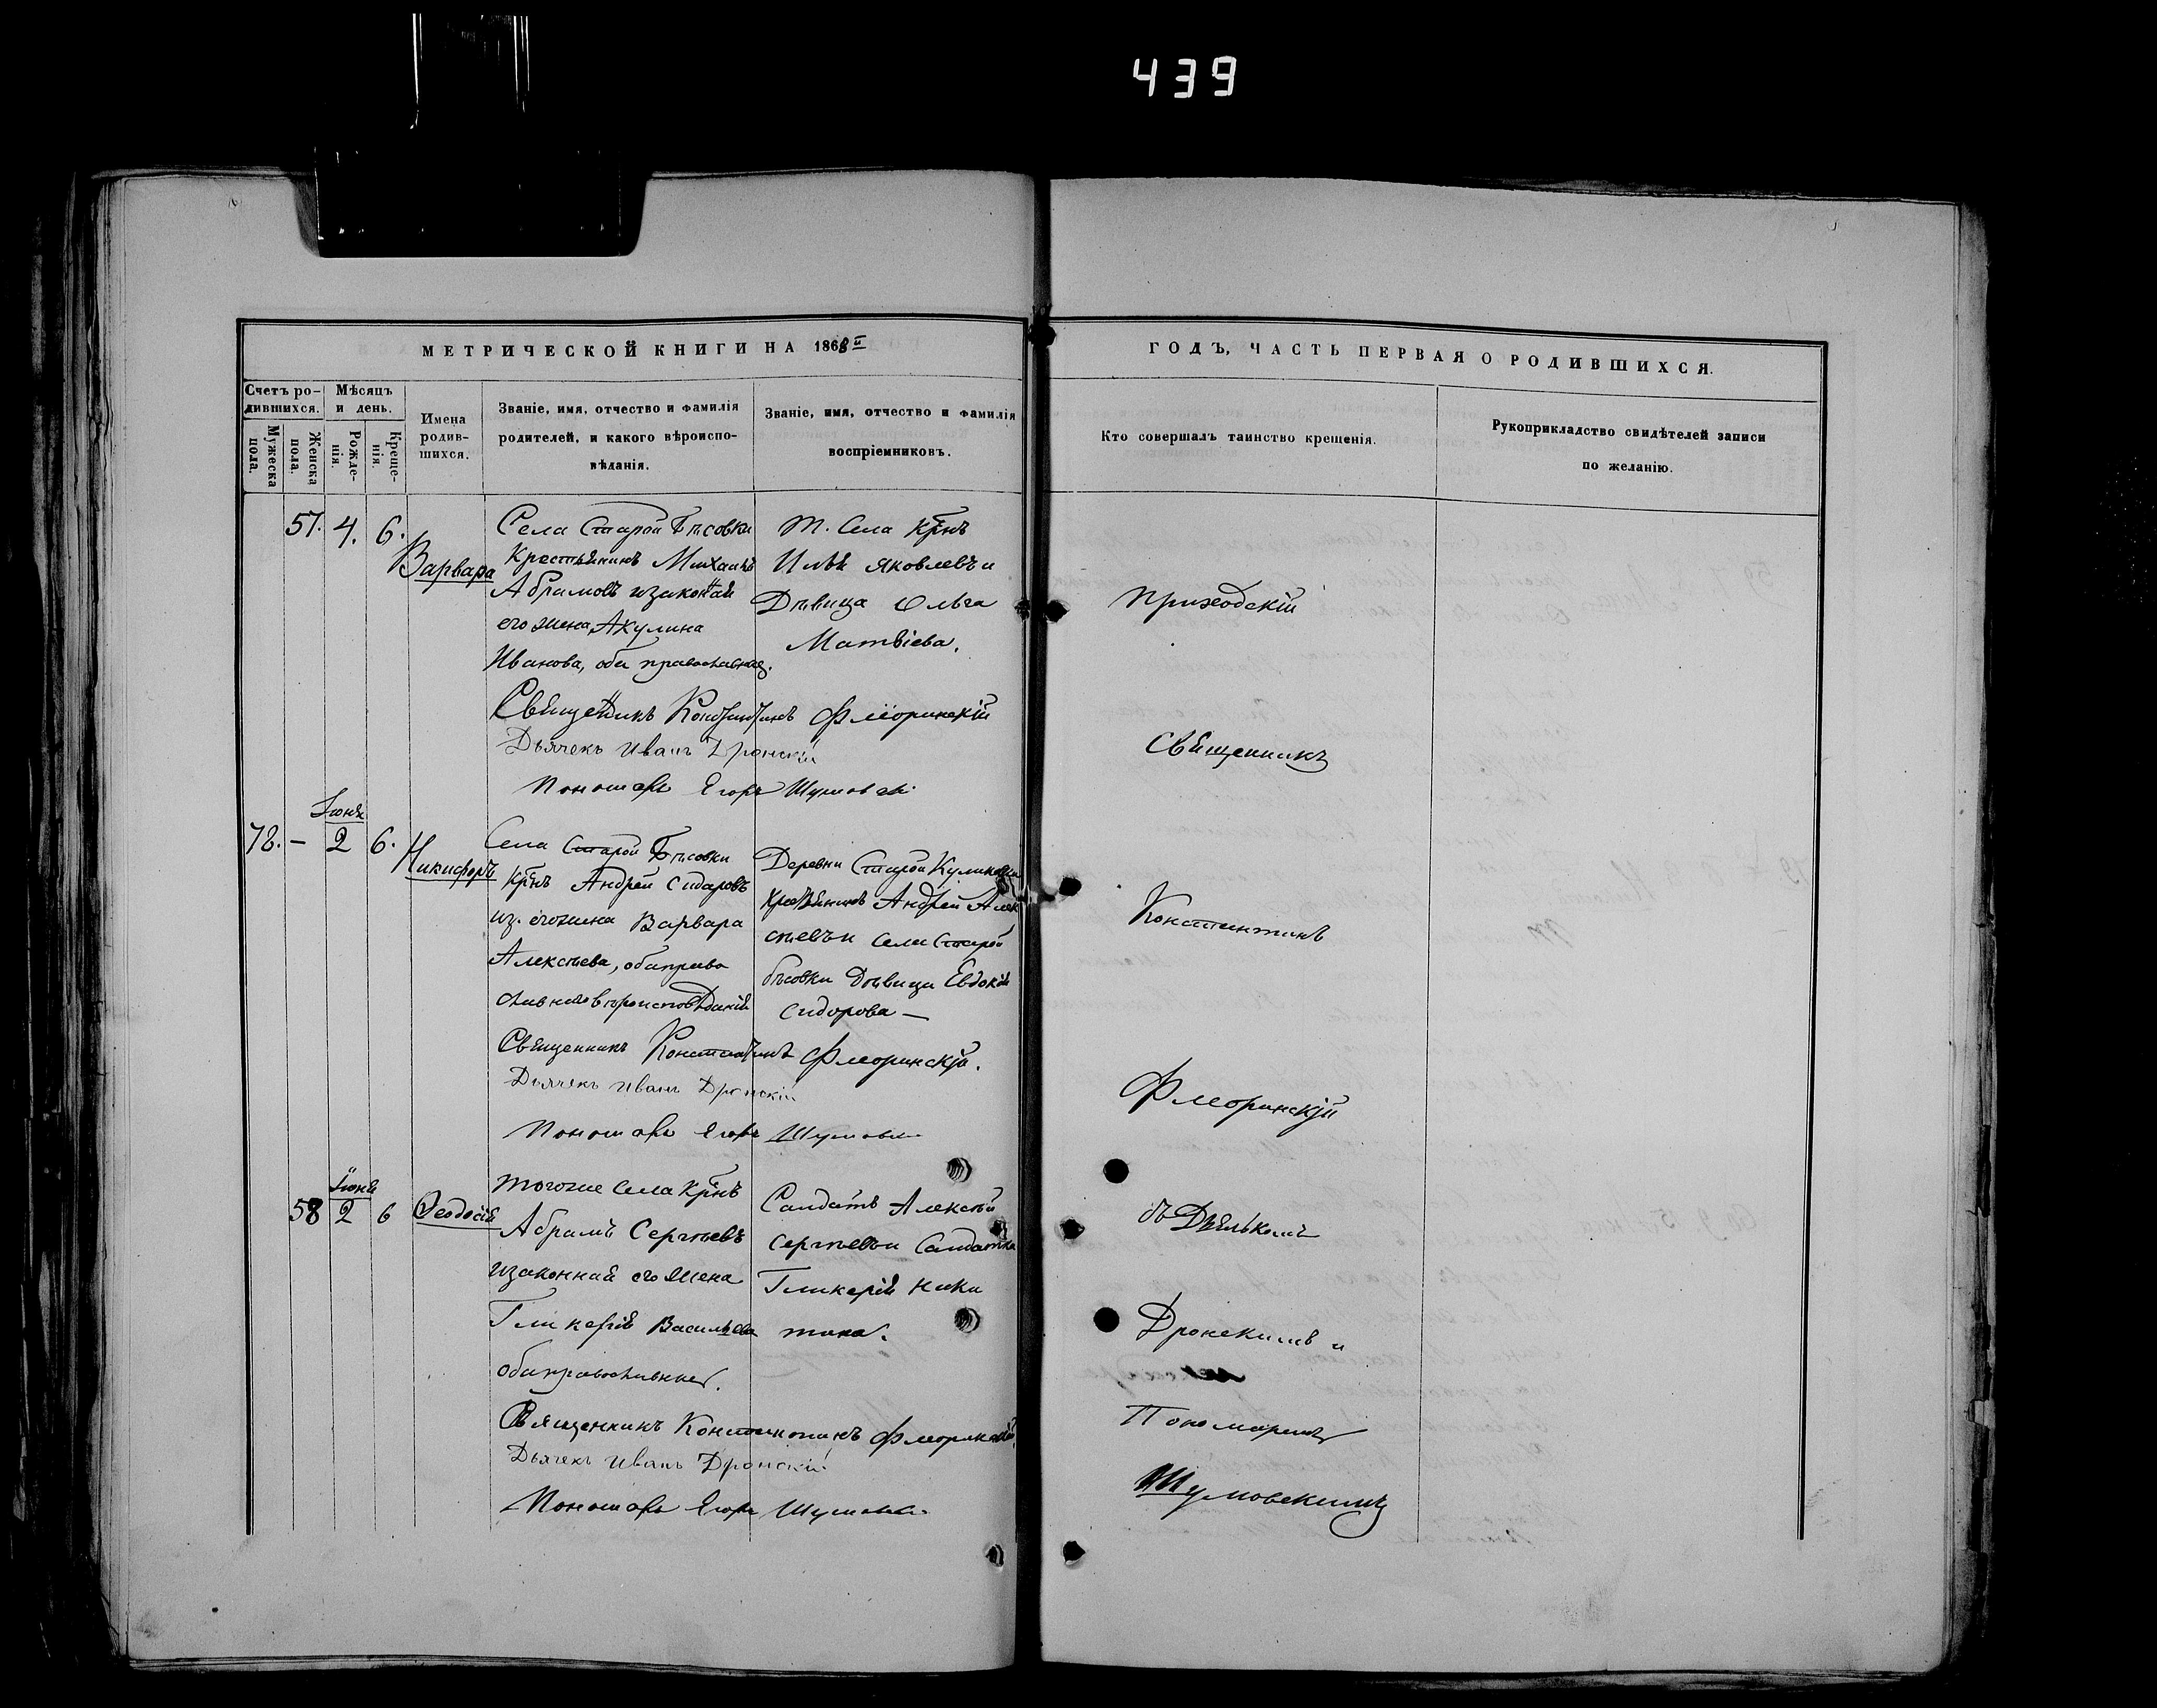 439
МЕТРИЧЕСКОЙ КНИГИ НА 1868й
ГОДЪ, ЧАСТЬ ПЕРВАЯ О РОДИВШИХСЯ.
Счетъ ро-
дившихся.
Мужеска
пола.
Женска
пола.
Мѣсяцъ
и день.
Рожде-
нія.
Креще-
нія.
Имена
родив-
шихся.
Званіе, имя, отчество и фамилія
родителей, и какого вѣроиспо-
вѣданія.
Званіе, имя, отчество и фамилія
воспріемниковъ.
Кто совершалъ таинство крещенія.
Рукоприкладство свидѣтелей записи
по желанію.
57. 4. 6.
Варвара
Села Старой Бѣсовки
крестьянинъ Михаилъ
Абрамовъ изаконая
его жена, Акулина
Иванова, оба православные.
Т. Села крнъ
Илья Яковлевъ и
Дѣвица Ольга
Матвіева.
Священникъ Константинъ Флеоринскій
Дьячекъ Иванъ Дронскій
Пономарь Егоръ Шумовскі
78. — Іюня 2 6.
Никифоръ
Села Старой Бѣсовки
крнъ Андрей Сидаровъ
из. егожена Варвара
Алексѣева, обаправо
славнаго вѣроисповѣданія
Деревни Старой Куликовки
крестьянинъ Андрей Алек
сѣевъ и села Старой
бѣсовки Дѣвица Евдокія
Сидорова —
Священникъ Константинъ Флеоринскій.
Дьячекъ Иванъ Дронскій
Пономарь Егоръ Шумовскі
58 Іюня 2 6
Ѳеодосія
Тогоже села крнъ
Абрамъ Сергѣевъ
изаконная его жена
Гликерія Васильева
обаправославные.
Салдатъ Алексѣй
Сергѣевъ и Салдатка
Гликерія Ники
тина.
Священникъ Константинъ Флеоринскій
Дьячекъ Иванъ Дронскій
Пономарь Егоръ Шумовскі
Приходскій
Священникъ
Константинъ
Флеоринскій
съ Дьячькомъ
Дронскимъ и
Пономаремъ
Шумовскимъ